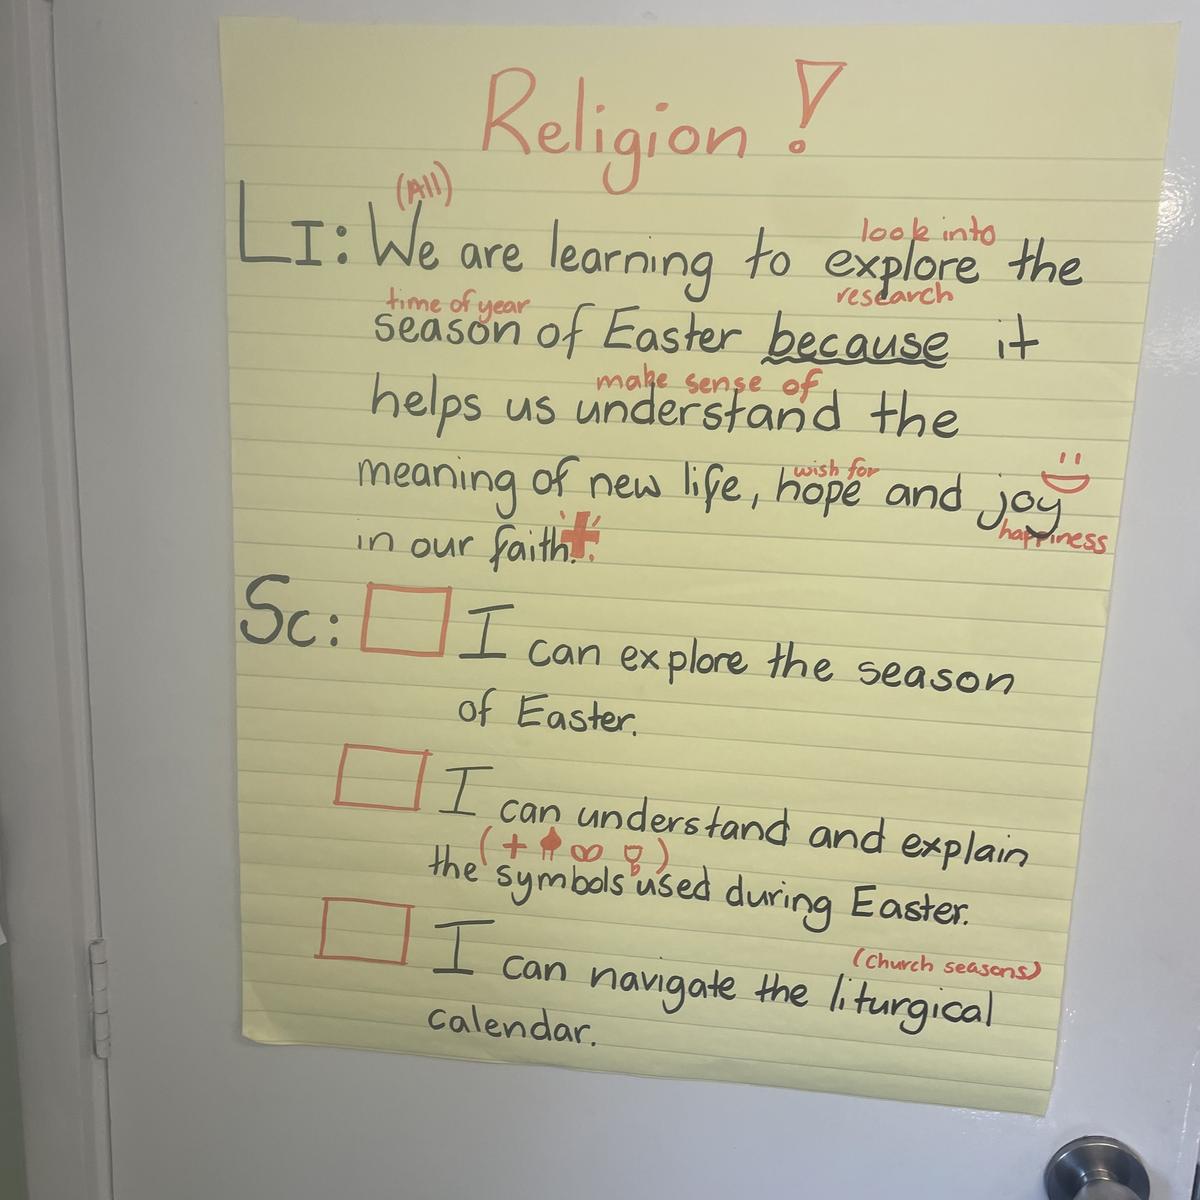 Religion!
(All)
LI: We are learning to explore the
look into
research
time of year
season of Easter because it
make sense of
helps us understand the
wish for
meaning of new life, hope and joy
happiness
in our faith.
Sc: I can explore the season
of Easter.
I can understand and explain
the symbols used during Easter.
(church seasons)
I can navigate the liturgical
calendar.